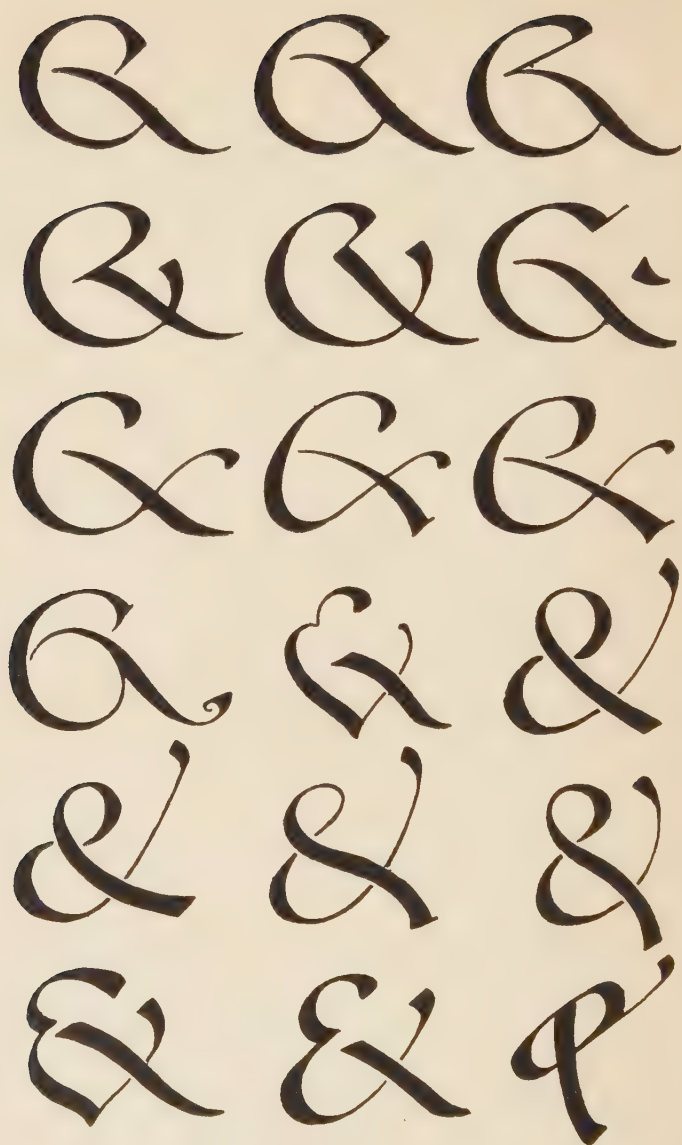 & & &
& & &
& & &
& & &
& & &
& & &